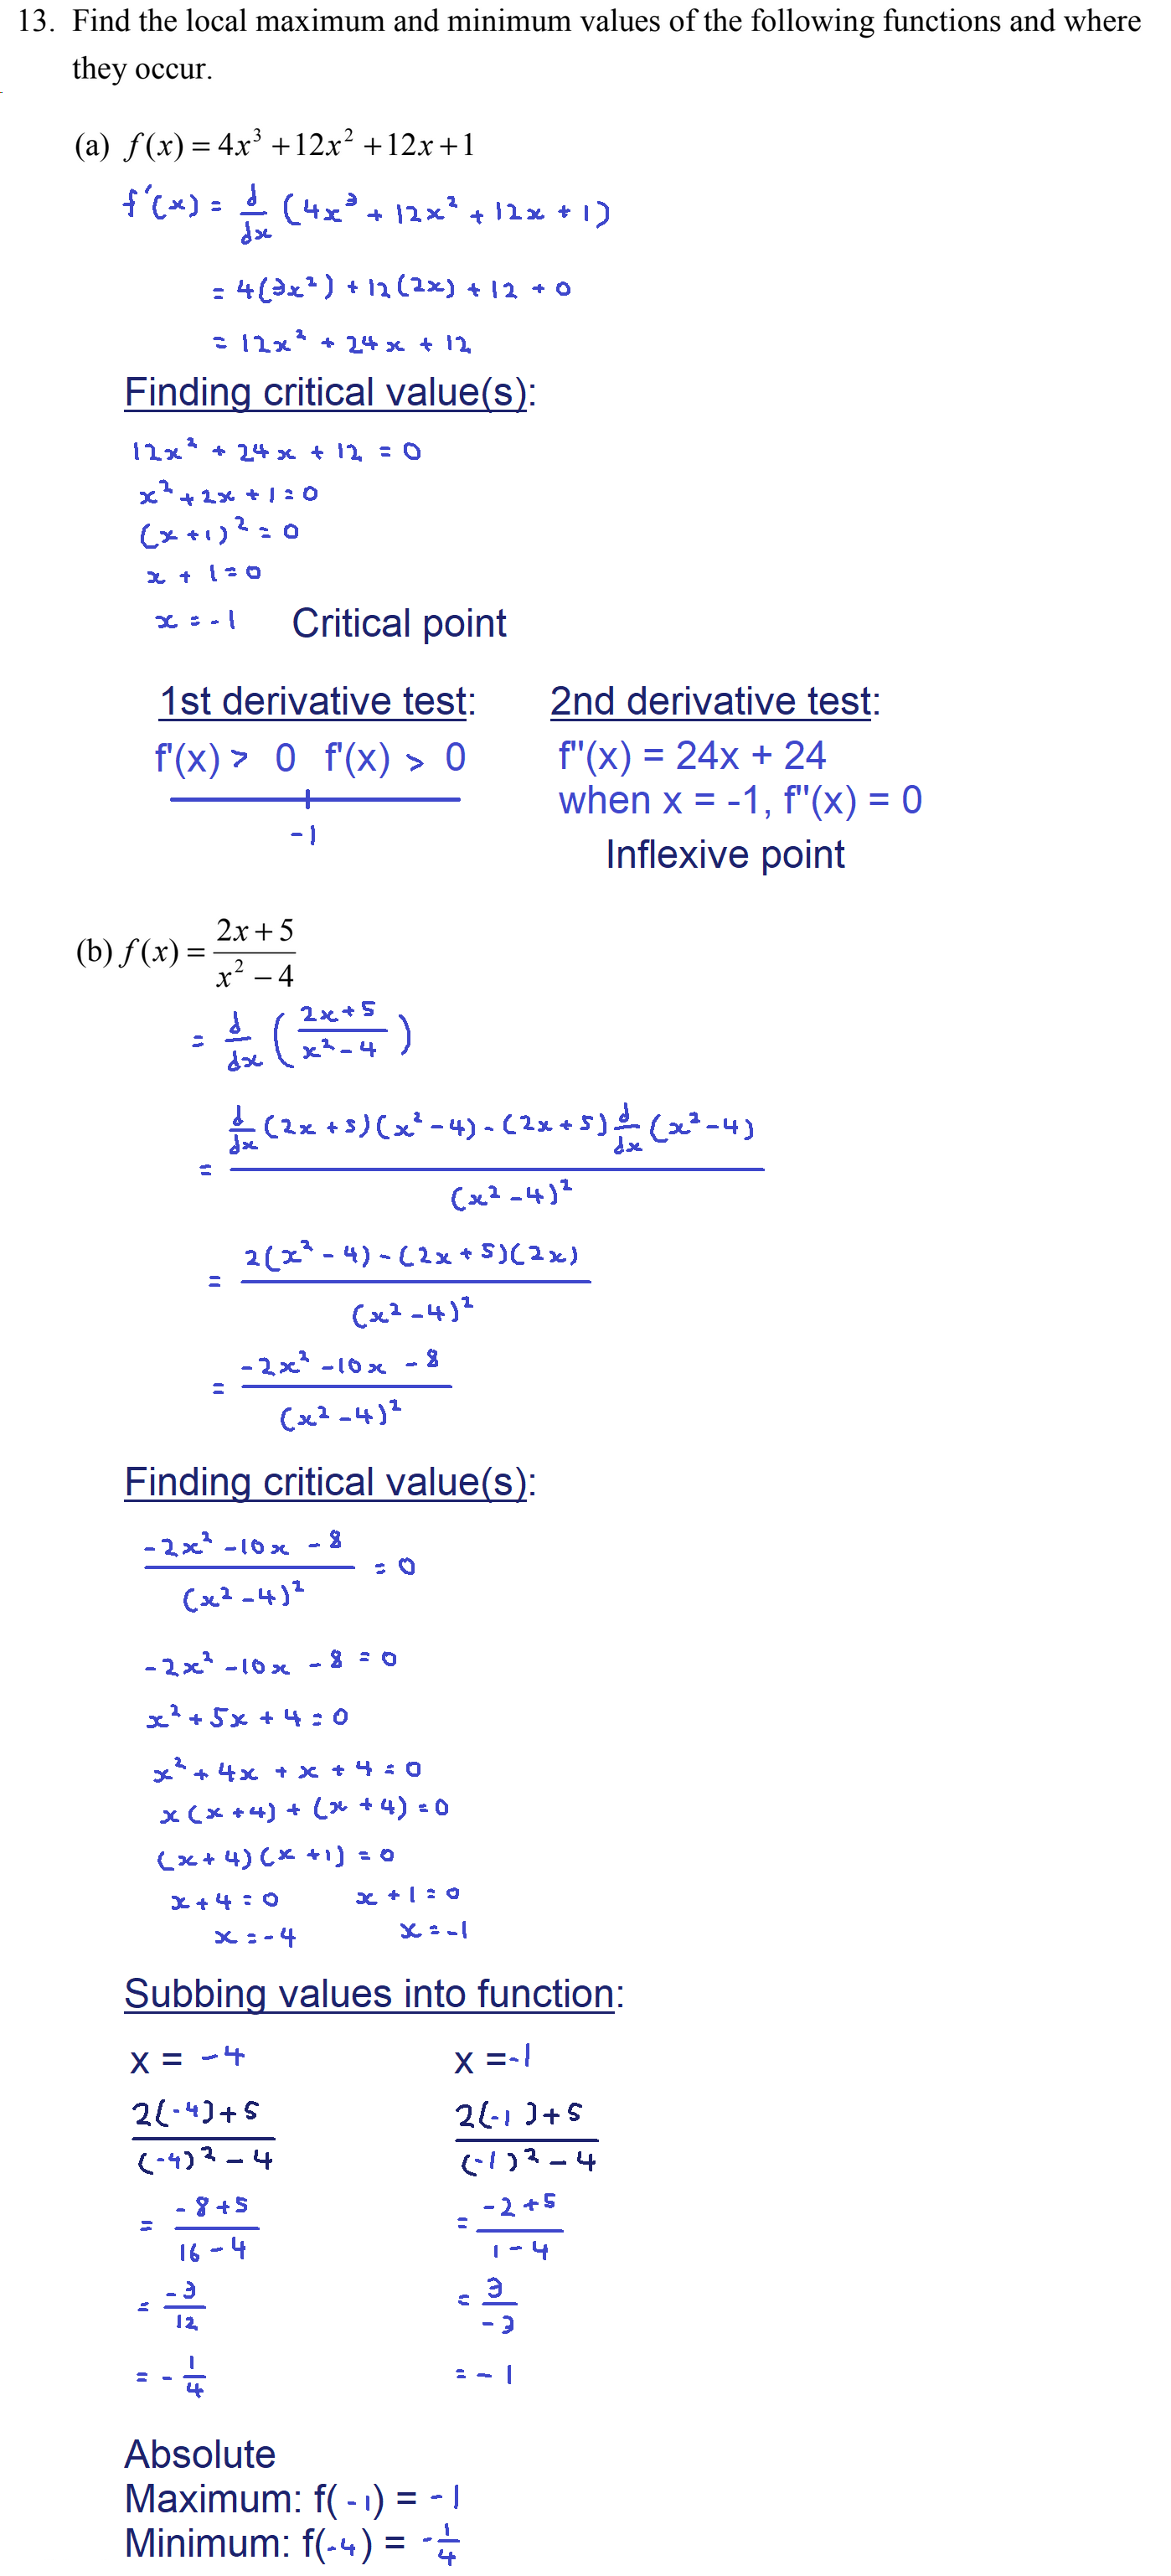 13. Find the local maximum and minimum values of the following functions and where
they occur.
(a) f(x) = 4x³ + 12x² + 12x + 1
f'(x) = d/dx (4x³ + 12x² + 12x + 1)
= 4(3x²) + 12(2x) + 12 + 0
= 12x² + 24x + 12
Finding critical value(s):
12x² + 24x + 12 = 0
x² + 2x + 1 = 0
(x + 1)² = 0
x + 1 = 0
x = -1 Critical point
1st derivative test: 2nd derivative test:
f'(x) > 0 f'(x) > 0 f''(x) = 24x + 24
when x = -1, f''(x) = 0
-1
Inflexive point
(b) f(x) = (2x + 5)/(x² - 4)
= d/dx ((2x + 5)/(x² - 4))
= (d/dx (2x + 5)(x² - 4) - (2x + 5) d/dx (x² - 4))/(x² - 4)²
= (2(x² - 4) - (2x + 5)(2x))/(x² - 4)²
= (-2x² - 10x - 8)/(x² - 4)²
Finding critical value(s):
(-2x² - 10x - 8)/(x² - 4)² = 0
-2x² - 10x - 8 = 0
x² + 5x + 4 = 0
x² + 4x + x + 4 = 0
x(x + 4) + (x + 4) = 0
(x + 4)(x + 1) = 0
x + 4 = 0 x + 1 = 0
x = -4 x = -1
Subbing values into function:
x = -4 x = -1
(2(-4) + 5)/((-4)² - 4) (2(-1) + 5)/((-1)² - 4)
= (-8 + 5)/(16 - 4) = (-2 + 5)/(1 - 4)
= -3/12 = 3/-3
= -1/4 = -1
Absolute
Maximum: f(-1) = -1
Minimum: f(-4) = -1/4